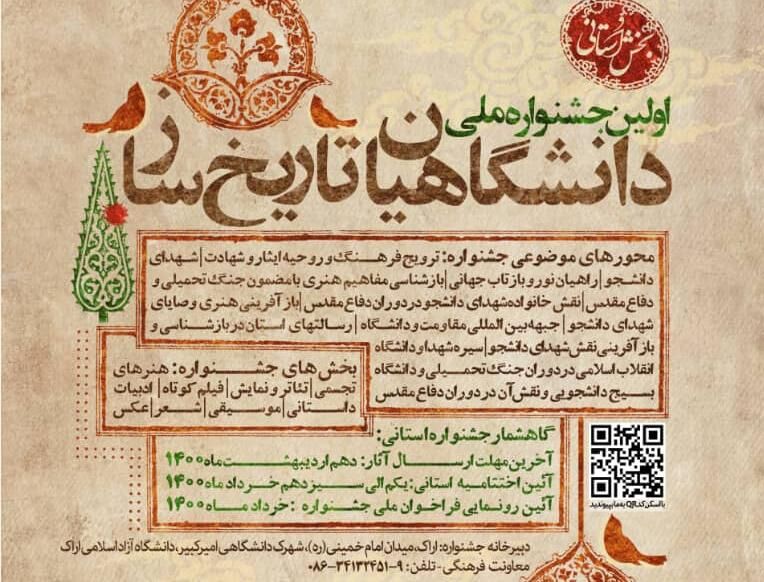 بخش استانی
اولین جشنواره ملی
دانشگاهیان تاریخ ساز
محورهای موضوعی جشنواره: ترویج فرهنگ و روحیه ایثار و شهادت | شهدای
دانشجو | راهیان نور و بازتاب جهانی | بازشناسی مفاهیم هنری با مضمون جنگ تحمیلی و
دفاع مقدس | نقش خانواده شهدای دانشجو در دوران دفاع مقدس | بازآفرینی هنری وصایای
شهدای دانشجو | جبهه بین المللی مقاومت و دانشگاه | رسالتهای استان در بازشناسی و
بازآفرینی نقش شهدای دانشجو | سیره شهدا و دانشگاه
انقلاب اسلامی در دوران جنگ تحمیلی و دانشگاه
بسیج دانشجویی و نقش آن در دوران دفاع مقدس
بخش های جشنواره: هنرهای
تجسمی | تئاتر و نمایش | فیلم کوتاه | ادبیات
داستانی | موسیقی | شعر | عکس
گاهشمار جشنواره استانی:
آخرین مهلت ارسال آثار: دهم اردیبهشت ماه ۱۴۰۰
آئین اختتامیه استانی: یکم الی سیزدهم خرداد ماه ۱۴۰۰
آئین رونمایی فراخوان ملی جشنواره: خرداد ماه ۱۴۰۰
با اسکن کد QR به ما بپیوندید
دبیرخانه جشنواره: اراک، میدان امام خمینی (ره)، شهرک دانشگاهی امیرکبیر، دانشگاه آزاد اسلامی اراک
معاونت فرهنگی - تلفن: ۹-۳۴۱۳۲۴۵۱-۰۸۶